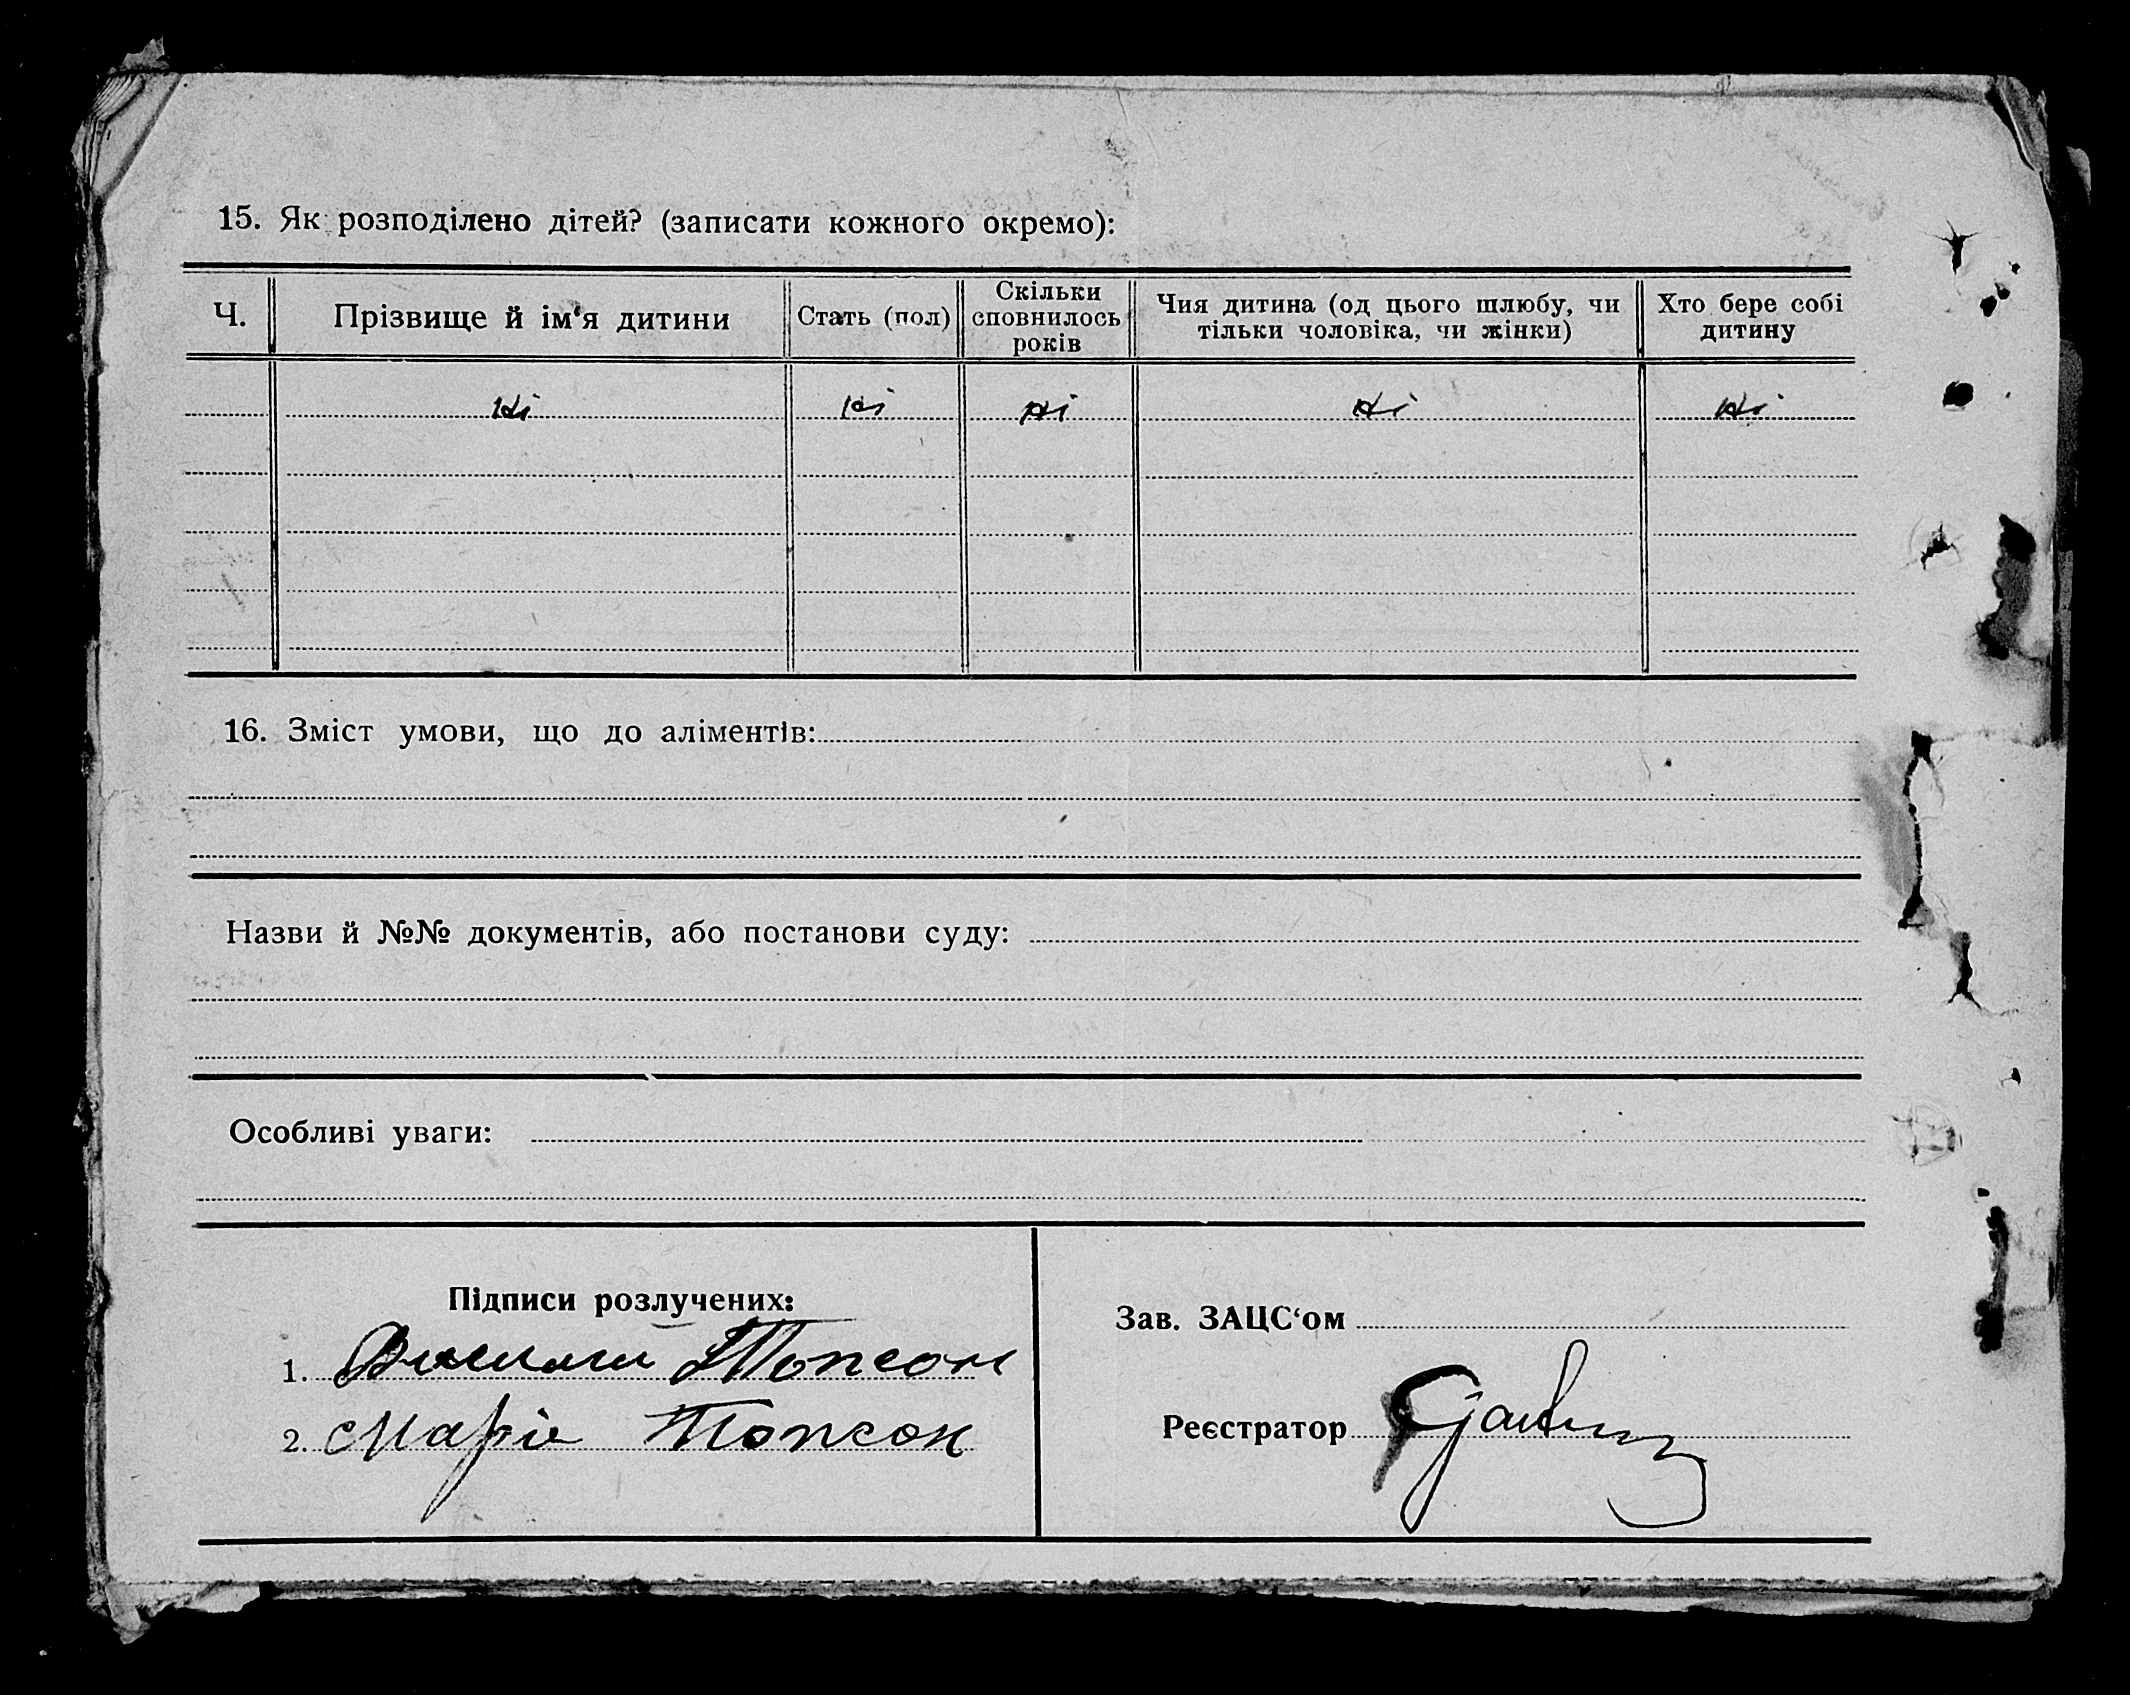 15. Як розподілено дітей? (записати кожного окремо):
Ч. Прізвище й ім‘я дитини Стать (пол) Скільки сповнилось років Чия дитина (од цього шлюбу, чи тільки чоловіка, чи жінки) Хто бере собі дитину
ні ні ні ні ні
16. Зміст умови, що до аліментів:
Назви й №№ документів, або постанови суду:
Особливі уваги:
Підписи розлучених:
1. Топсон
2. Марія Топсон
Зав. ЗАЦС‘ом
Реєстратор